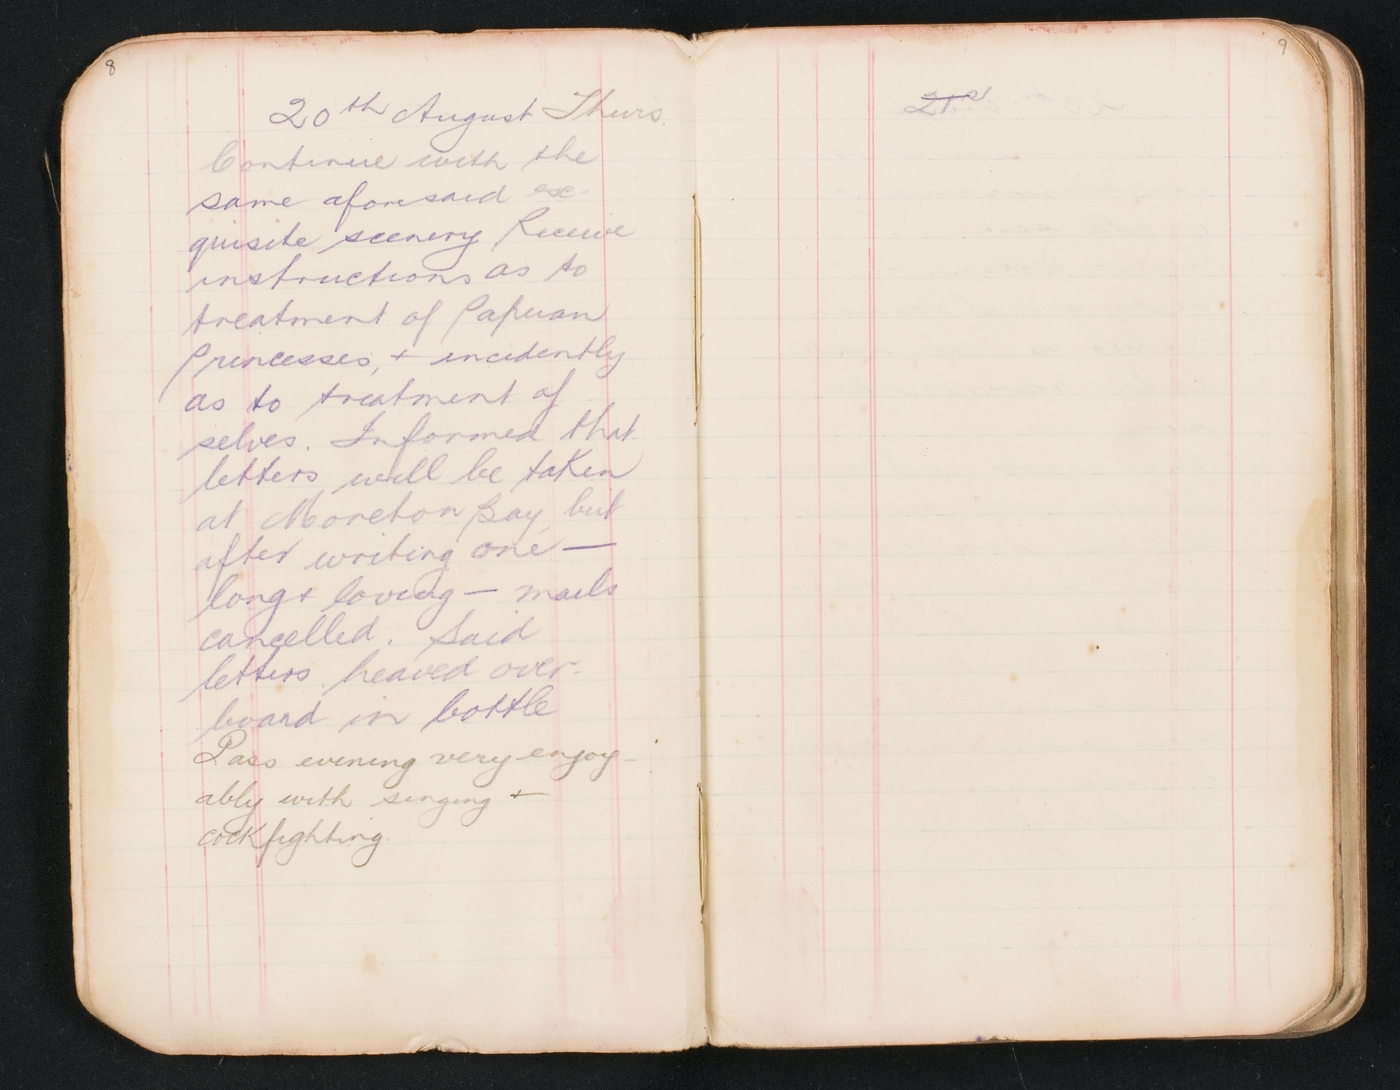 8
20th August Thurs.
Continue with the
same aforesaid ex-
quisite scenery Receive
instructions as to
treatment of Papuan
Princesses, + incidently
as to treatment of
selves. Informed that
letters will be taken
at Moreton Bay but
after writing one —
long + loving — mails
cancelled. Said
letters heaved over-
board in bottle
Pass evening very enjoy-
ably with singing +
cockfighting.
9
21st